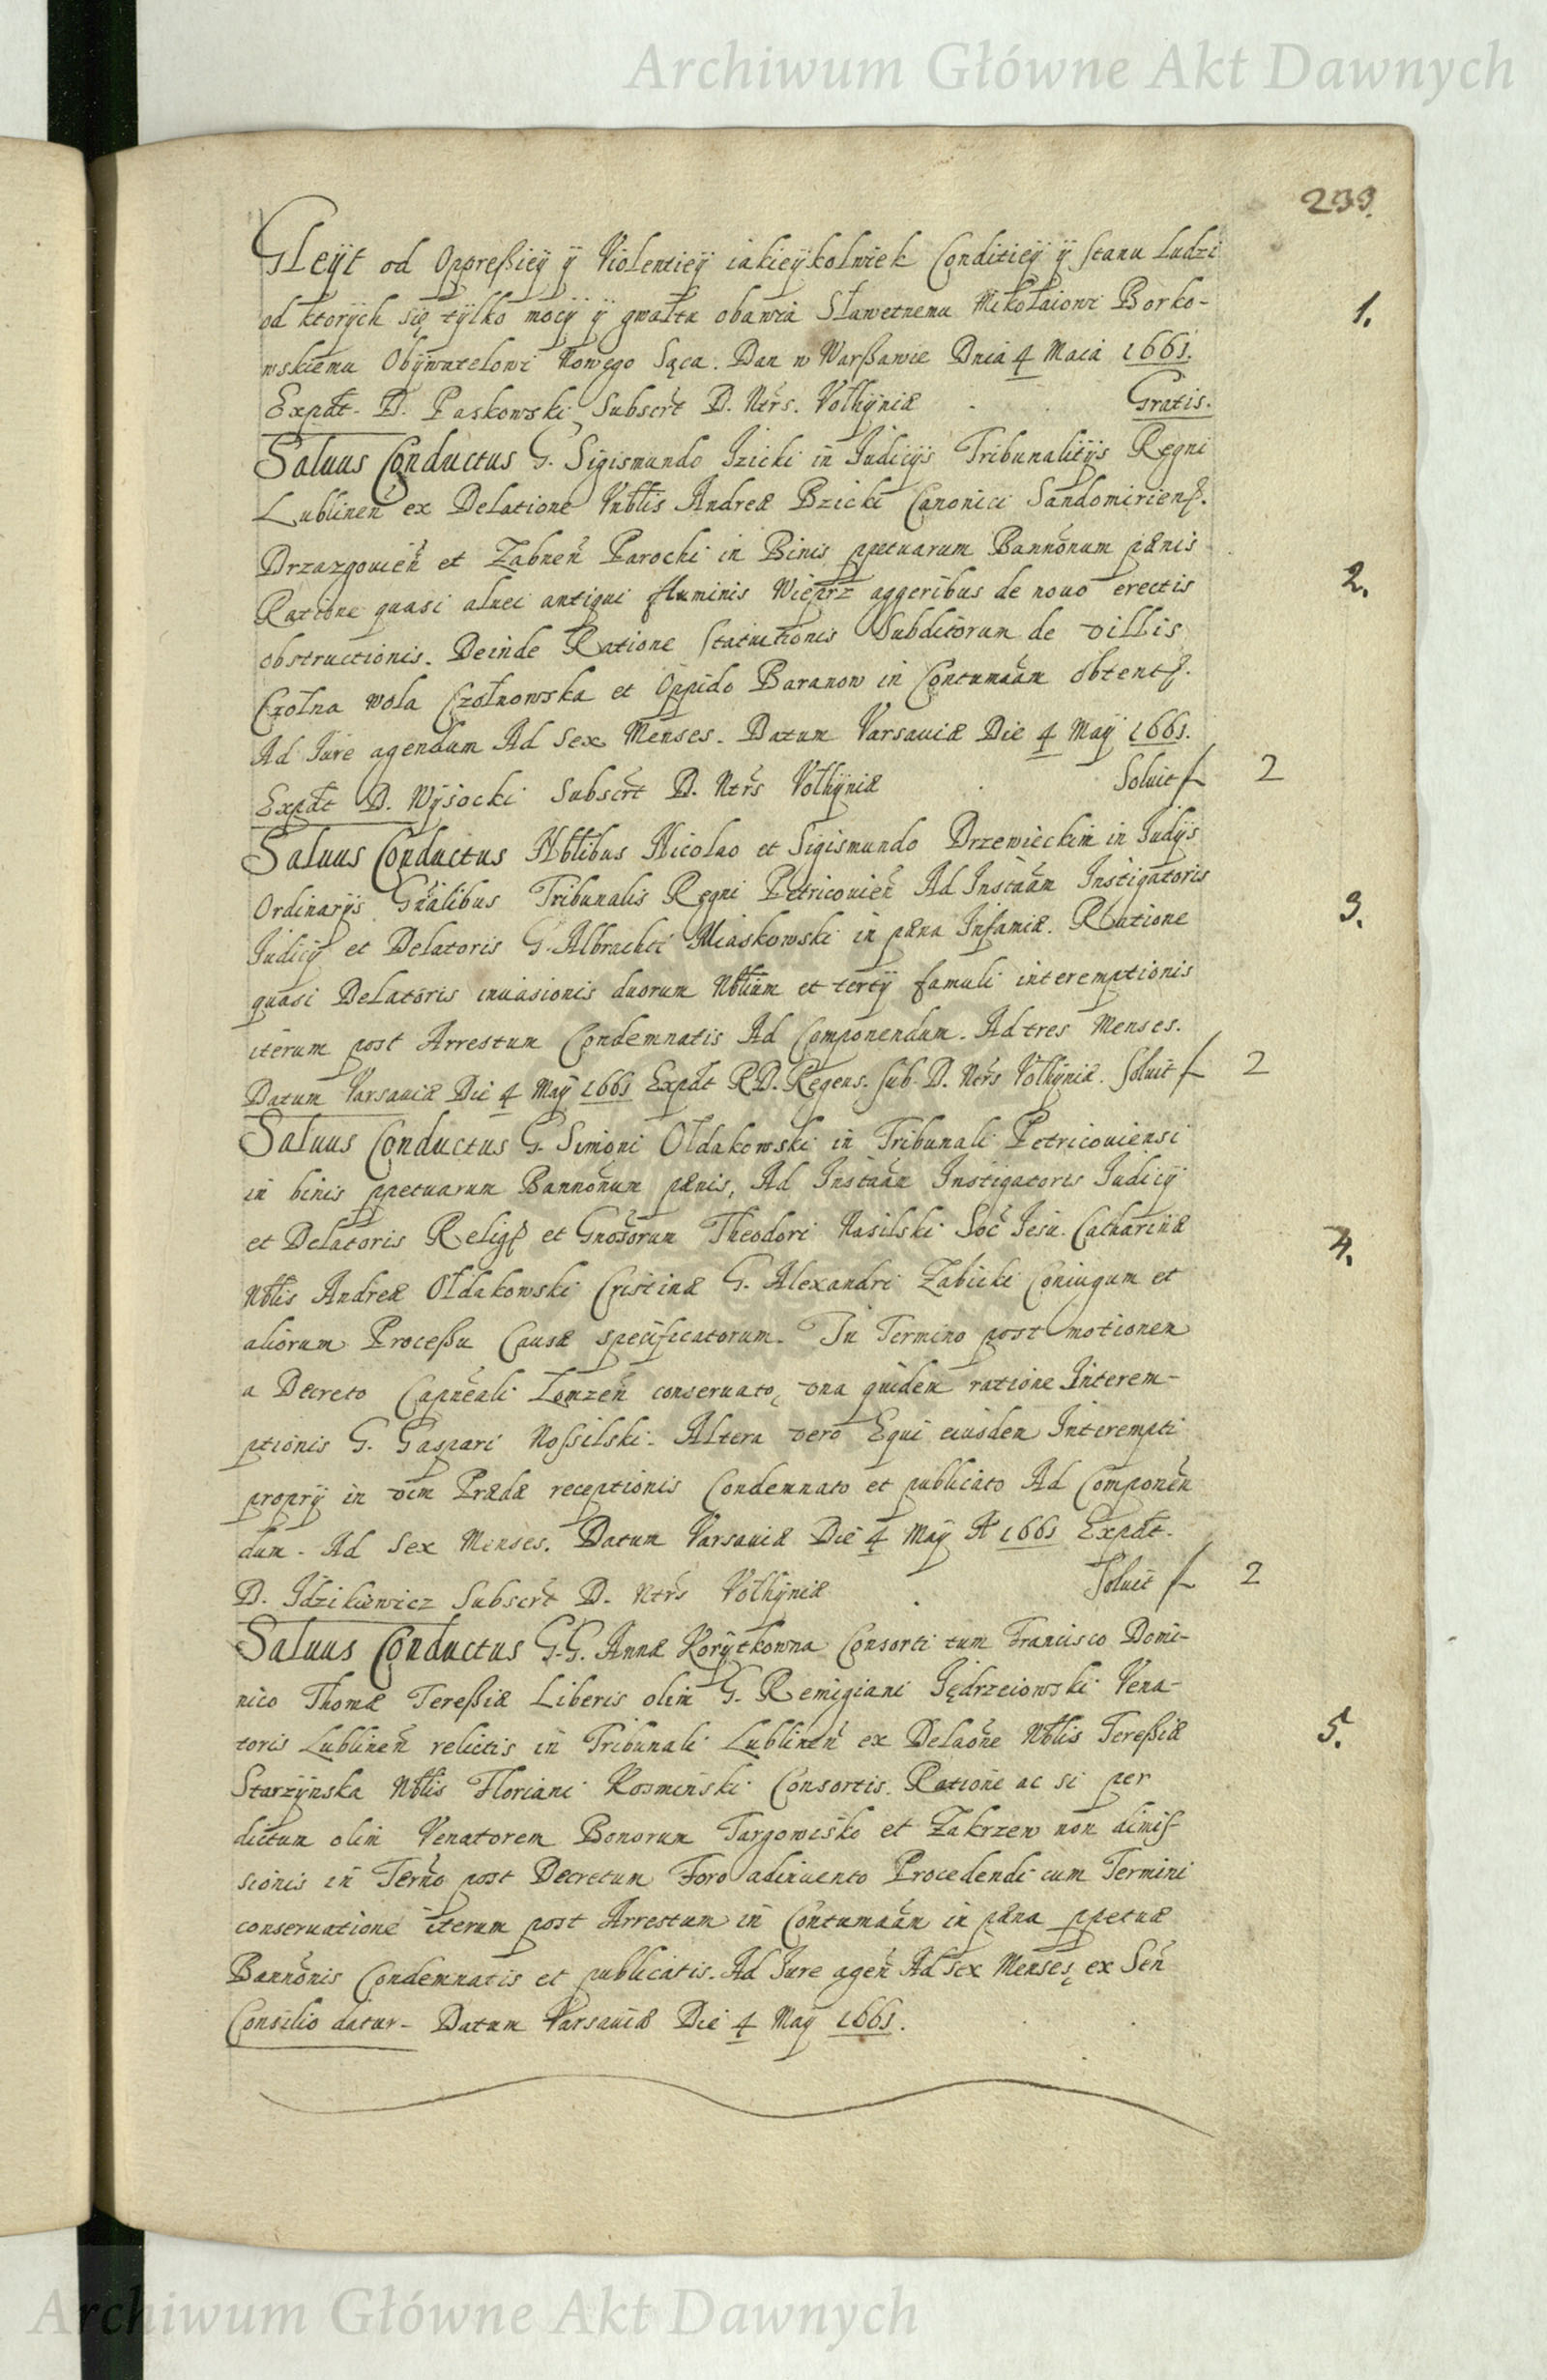 Archiwum Główne Akt Dawnych
239.
Gleÿt od Oppreßieÿ ÿ Violentieÿ iakieÿkolwiek Conditieÿ ÿ stanu Ludzi
od ktorÿch się tÿlko mocÿ ÿ gwałtu obawia Sławetnemu Mikołaiowi Borko-
wskiemu Obÿwatelowi Nowego Sąca. Dan w Warßawie Dnia 4 Maia 1661.
1.
Expdt. D. Paskowski Subscrt D. Ntrs. Volhÿniæ Gratis.
Saluus Conductus G. Sigismundo Izicki in Iudicÿs Tribunalitÿs Regni
Lublinen ex Delatione Vnblis Andreæ Bzicki Canonici Sandomiriens.
Drzazgouien et Zabnen Parochi in Binis ppetuarum Bannonum pænis
Ratione quasi aluei antiqui fluminis Wieprz aggeribus de nouo erectis
2.
obstructionis. Deinde Ratione statuitionis Subditorum de villis
Czołna wola Czołnowska et Oppido Baranow in Contumaam obtent.
Ad Iure agendum Ad sex Menses. Datum Varsauiæ Die 4 Maÿ 1661.
Expdt D. Wÿsocki Subscrt D. Ntrs Volhÿniæ Soluit f 2
Saluus Conductus Nblibus Nicolao et Sigismundo Drzewieckim in Iudÿs
Ordinarÿs Gnalibus Tribunalis Regni Petricouien Ad Instaam Instigatoris
Iudicÿ et Delatoris G. Albrachti Miaskowski in pæna Infamiæ. Ratione
3.
quasi Delatoris inuasionis duorum Nblium et tertÿ famuli interemptionis
iterum post Arrestum Condemnatis Ad Componendum. Ad tres Menses.
Datum Varsauiæ Die 4 Maÿ 1661 Expdt R.D. Regens. sub. D. Ntrs Volhÿniæ. Soluit f 2
Saluus Conductus G. Simoni Ołdakowski in Tribunali Petricouiensi
in binis ppetuarum Bannonum pænis, Ad Instaam Instigatoris Iudicÿ
et Delatoris Relig et Gnosorum Theodori Nasilski Soc Iesu. Catharinæ
4.
Nblis Andreæ Ołdakowski Cristinæ G. Alexandri Zabicki Coniugum et
aliorum Proceßu Causæ specificatorum. In Termino post motionem
a Decreto Capneali Lomzen conseruato, vna quidem ratione Interem-
ptionis G. Gaspari Noßilski. Altera vero Equi eiusdem Interempti
proprÿ in vim Prædæ receptionis Condemnato et publicato Ad Componen
dum. Ad sex Menses. Datum Varsauiæ Die 4 Maÿ A 1661 Expdt.
D. Idzikiewicz Subscrt D. Ntrs Volhÿniæ Soluit f 2
Saluus Conductus G.G. Annæ Korÿtkowna Consorti tum Francisco Domi-
nico Thomæ Tereßiæ Liberis olim G. Remigiani Jędrzeiowski Vena-
toris Lublinen relictis in Tribunali Lublinen ex Delaone Nblis Tereßiæ
5.
Starzÿnska Nblis Floriani Kosminski Consortis. Ratione ac si per
dictum olim Venatorem Bonorum Targowisko et Zakrzew non dimis-
sionis in Terno post Decretum Foro adinuento Procedendi cum Termini
conseruatione iterum post Arrestum in Contumaam in pæna ppetuæ
Bannonis Condemnatis et publicatis. Ad Iure agen Ad sex Menses, ex Sen
Consilio datur. Datum Varsauiæ Die 4 Maÿ 1661.
Archiwum Główne Akt Dawnych